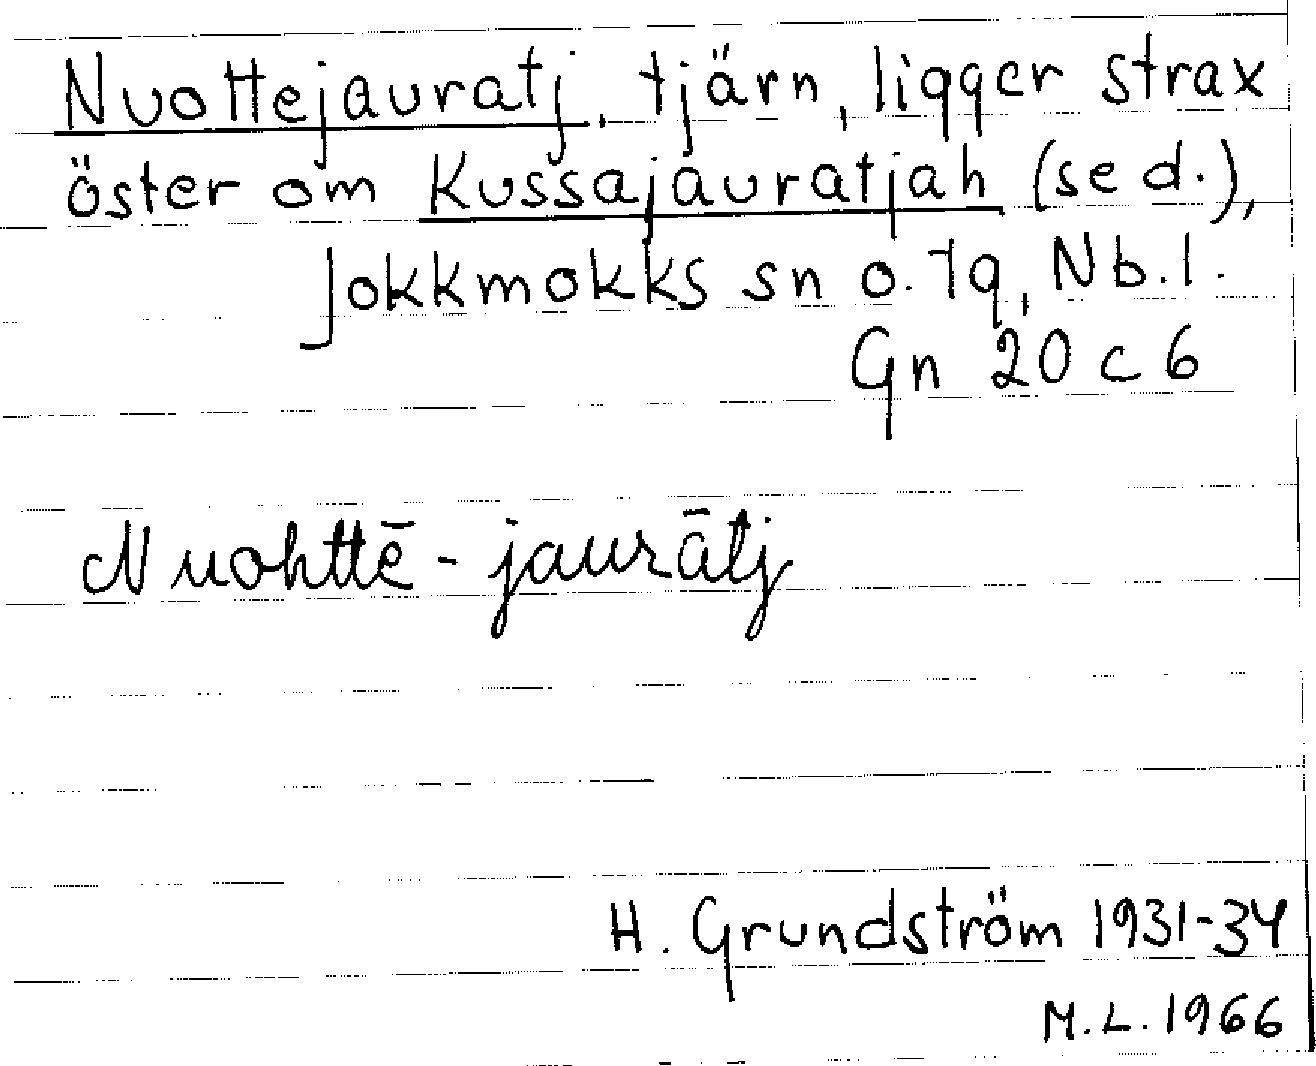 Nuottejauratj, tjärn, ligger strax
öster om Kussajauratjah (se d.),
Jokkmokks sn o. tg, Nb.l.
Gn 20 c 6
Nuohttē-jaurātj
H. Grundström 1931-34
M.L. 1966